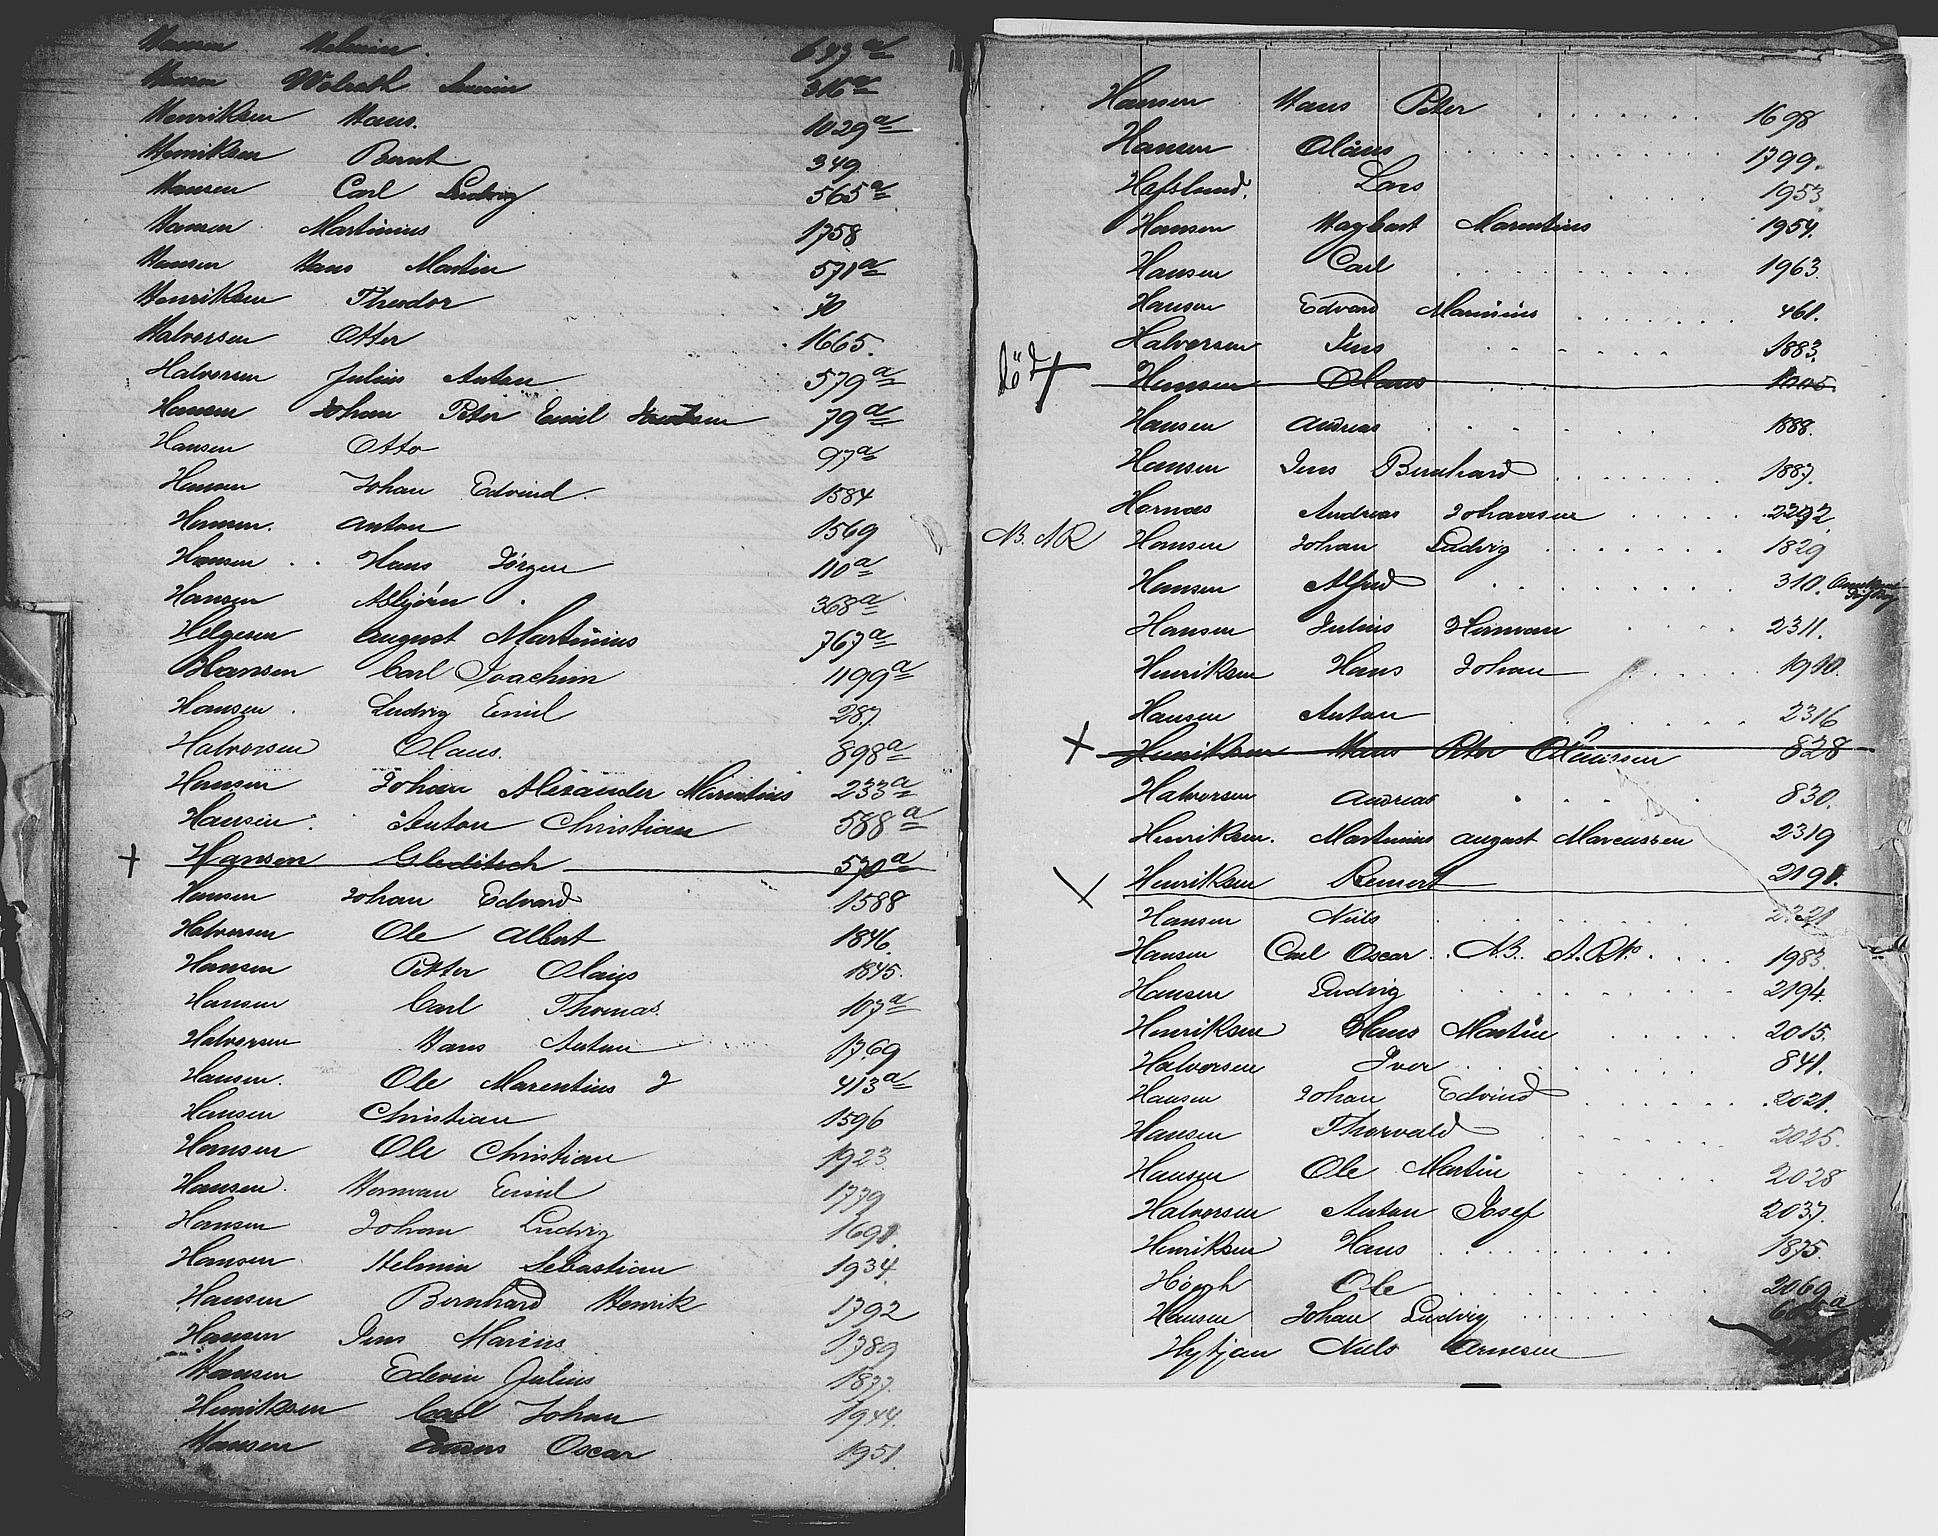 Hansen Helmin. 643 a
Hansen Wolrath Severin 316 a
Henriksen Hans. 1029 a
Henriksen Bernt 349
Hansen Carl Ludvig 565 a
Hansen Martinius 1758
Hansen Hans Martin 571 a
Henriksen Theodor 70
Halversen Otter 1665.
Halversen Julius Anton 579 a
Hansen Johan Peter Emil 79 a
Hansen Otto 97 a
Hansen Johan Edvind 1584
Hansen. Anton 1569
Hansen Hans Jörgen 110 a
Hansen Asbjörn 368 a
Helgesen August Martinius 767 a
Hansen Carl Joachim 1199 a
Hansen Ludvig Emil 287
Halversen Olaus. 898 a
Hansen Johan Alexander Marntius 233 a
Hansen Anton Christian 588 a
+ Hansen Gleditsch 570 a
Hansen Johan Edvard 1588
Halversen Ole Albert 1846
Hansen Petter Olaus 1845.
Hansen Carl Thomas 107 a
Halversen Hans Anton 1769
Hansen. Ole Marentius 2 413 a
Hansen Christian 1596
Hansen Ole Christian 1923
Hansen. Herman Emil 1779
Hansen Johan Ludvig 1691.
Hansen Helmin Sebastian 1934.
Hansen Bernhard Henrik 1792
Hansen Jens Marius 1789
Hansen Edevin Julius 1877.
Henriksen Carl Johan 1944.
Hansen Oscar 1951.
Hansen Hans Peter 1698
Hansen Olaus 1799.
Hafslund. Lars 1953
Hansen Hagbart Marentius 1954.
Hansen Carl 1963
Hansen Edvard Marinius 461.
Halversen Jens 1883.
död + Hansen Olaus
Hansen Andreas 1888.
Hansen Jens Bernhard 1887.
Hornæs Andreas Johansen 2292
N.B. NR Hansen Johan Ludvig 1829
Hansen Alfred 310.
Hansen Julius Herman 2311.
Henriksen Hans Johan 1910.
Hansen Anton 2316
X Henriksen Hans Peter Olaussen 828
Halversen Andreas 830.
Henriksen. Martinius August Marcussen 2319
X Henriksen Reinert 2191.
Hansen Nils 2321
Hansen Carl Oscar N.B. 1983.
Hansen Ludvig 2194
Henriksen Hans Martin 2015.
Halversen Iver 841.
Hansen Johan Edvind 2021.
Hansen Thorvald 2025.
Hansen Ole Martin 2028
Halversen Anton Josef 2037.
Henriksen Hans 1875.
Höegh Ole 2069
Hansen Johan Ludvig
Hytjan Niels Arnesen